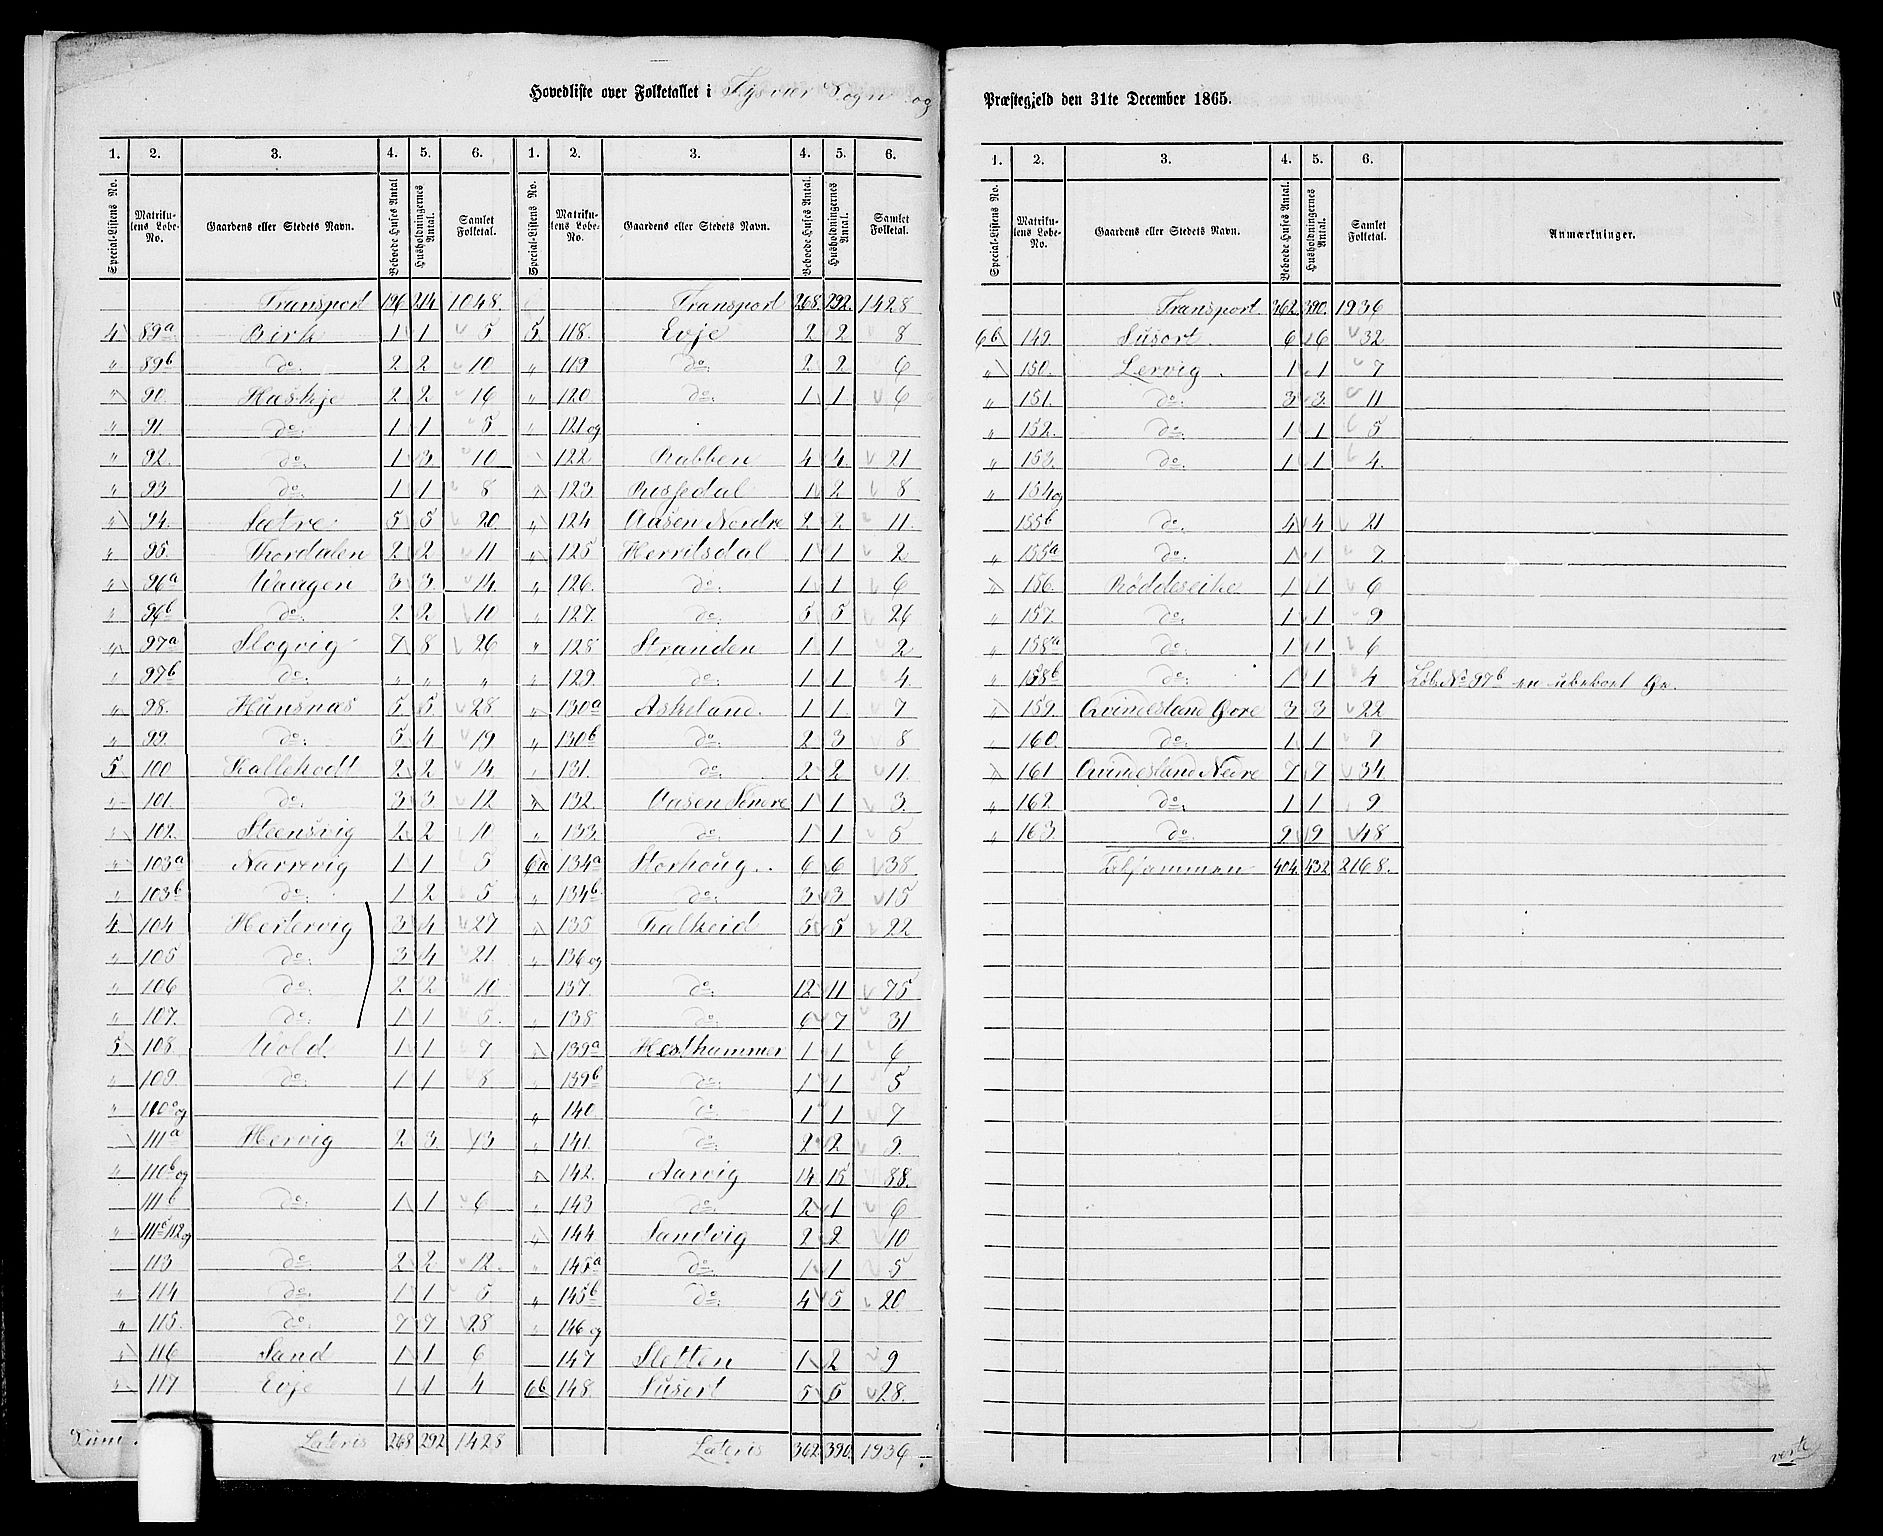 Hovedliste over Folketallet i Tysvær Sogn og Præstegjeld den 31te December 1865.
1. 2. 3. 4. 5. 6. 1. 2. 3. 4. 5. 6.
Special-Listens No. Matrikulens Løbe-No. Gaardens eller Stedets Navn. Beboede Huses Antal Husholdningernes Antal. Samlet Folketal. Special-Listens No. Matrikulens Løbe-No. Gaardens eller Stedets Navn. Beboede Huses Antal. Husholdningernes Antal. Samlet Folketal.
Transport 196 214 1048. Transport 268. 292. 1428
4 89a Birk 1 1 5 5. 118. Evje 2 2 8
" 89b do: 2 2 10 " 119 do: 2 2 6
" 90 Haskje 2 2 16 " 120 do: 1 1 6
" 91 do: 1 1 5 " 121 og
" 92. do: 1 3 10 122 Rabben 4 4. 21
" 93 do: 1 1 8 " 123. 1 2 8
" 94. Sætre 5 5 20 " 124 Aasen Nordre 2 2 11.
" 95. Thordalen 2 2 11 " 125 Herritsdal 1 1 2
" 96a Vaagen 3 3 14 " 126. do: 1 1 6
" 96b do: 2 2 10 " 127. do: 5 5 26
" 97a Slogvig 7 8 26 " 128 Stranden 1 1 2
" 97b do: " " " " 129. do: 1 1 4.
" 98. Hunsnæs 5. 5. 28 " 130a Askeland. 1 1 7
" 99. do: 5 4 19 " 130b do: 2 3 8
5 100 Kallekodt 2 2 14 " 131. do: 2 2 11.
" 101. do: 3 3 12 " 132. Aasen 1 1 3.
" 102. Steensvig 2 2 10 " 133. do: 1 1 5
" 103a Narrevig 1 1 5 6a 134a Storhoug 6 6 38
" 103b do: 1 2 5 134b do: 3 3 15
4. 104 Hertervig 3 4 27 135 Falkeid 5 5 22
" 105 do: 3 4 21. " 136 og
" 106 do: 2 2 10 137. do: 12 11 75
" 107. do: 1 1 5. " 138. do: 6 7 31
5 108. Vold 1 1 7 139a Hesthammer 1 1 6
" 109. do: 1 1 8 " 139b do: 1 1 5
" 110a og " 140 do: 1 1 7
111a Hervig 2 3 13 " 141. do: 2 2 9.
" 110b og " 142. Aarvig 14 15 88.
111b do: 1 1 6 " 143 do: 2 1 6
" 111c 112 og " 144 Sandvig 2 2 10
113 do: 2 2 12. " 145a do: 1 1 5
" 114 do: 1 1 5. " 145b do: 4 5 20
" 115. do: 7 7 28 " 146 og
" 116 Sand 1 1 6 147 Sletten 1 2 9
" 117 Evje 1 1 4 6b 148. Susort 5 5 28.
Lateris 268 292 1428 Lateris 362 390. 1936
1. 2. 3. 4. 5. 6.
Special-Listens No. Matrikulens Løbe-No. Gaardens eller Stedets Navn. Beboede Huses Antal. Husholdningernes Antal. Samlet Folketal. Anmærkninger.
Transport 362. 390. 1936
6b 149. Susort. 6 6 32
" 150. Lervig. 1 1 7
" 151. do: 3 3. 11
" 152. do: 1 1 5
" 153. do: 1 1 4.
" 154 og
155b do. 4 4 21
" 155a do: 1 1 7.
" 156. Røddeseike 1 1 6
" 157. do: 1 1 9
" 158a do: 1 1 6
" 158b do: 1 1 4 Løb. No 97b en ubeboet Øe.
" 159. Qvindesland Øvre 3 3 22
" 160. do: 1 1 7
" 161 Qvindesland Nedre 7 7 34
" 162. do: 1 1 9
" 163. do: 9 9 48
Tilsammen 404. 432. 2168.